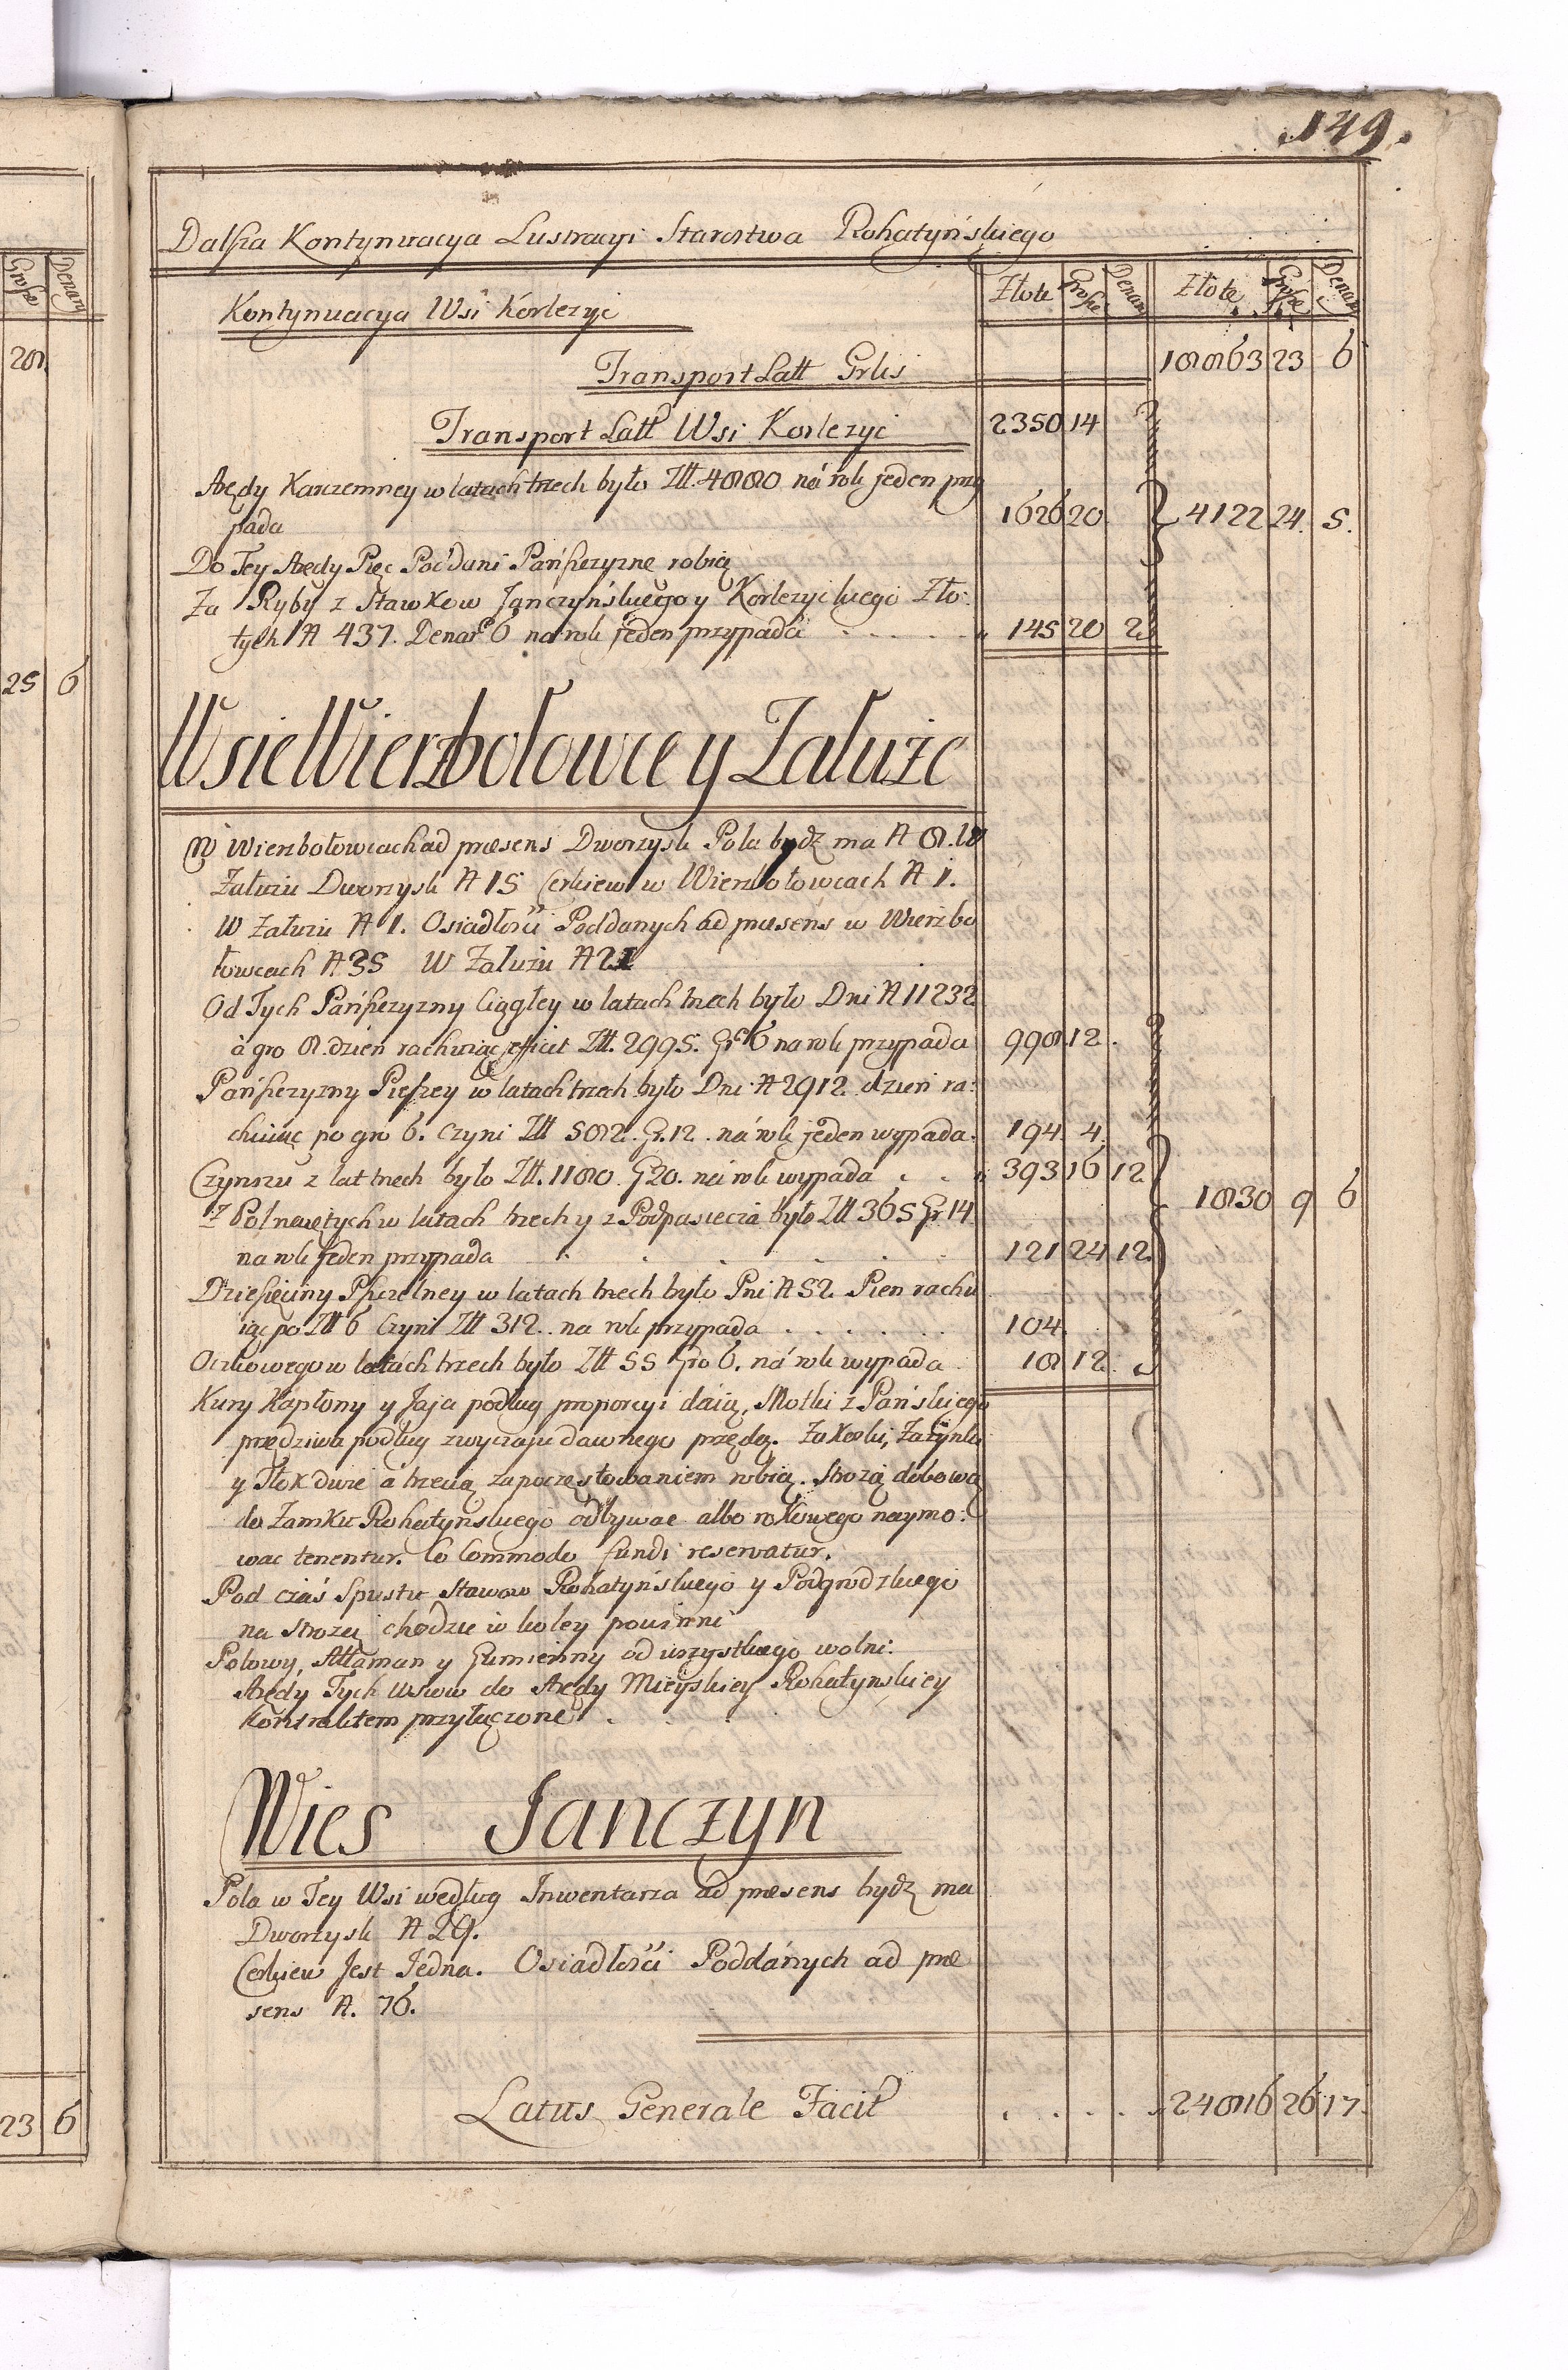 149.
Dalsza Kontynuacya Lustracyi Starostwa Rohatyńskiego
Złote Grosze Denary Złote Grosze Denary
Kontynuacya Wsi Korlezyc
Transport Latt Grlis 18863 23 6
Transport Latt Wsi Korlezyc 2350 14
Arędy Karczemney w latach trzech było Złł. 4880 ná rok jeden przy
pada 1626 20 4122 24. 5.
Do Tey Arędy Pięc Poddani Pańszczyznę robią
Za Ryby z Stawkow Janczyńskiego y Korlezyckiego Zło:
tych N 437. Denar 6 na rok jeden przypada 145 20 2
Wsie Wierzbołowce y Załuże
W Wierzbołowcach ad præsens Dworzysk Pola bydź ma N 8. W
Załużu Dworzysk N 15 Cerkiew w Wierzbołowcach N 1.
W Załużu N 1. Osiadłości Poddanych ad præsens w Wierzbo
łowcach N 35 W Załużu N 21
Od Tych Pańszczyzny Ciągłey w latach trzech było Dni N 11232
à gro 8. dzień rachuiąc efficit Złł. 2995. Gr 6 na rok przypada 998 12.
Pańszczyzny Pieszey w latach trzech było Dni N 2912 dzień ra:
chuiąc po gro 6. czyni Złł 582. Gr. 12. ná rok jeden wypada. 194. 4.
Czynszu z lat trzech było Złł. 1180. G 20. ná rok wypada 393 16 12
1830 9 6
z Pol naiętych w latach trzech y z Podpasiecza było Złł 365 Gr 14
na rok jeden przypada 121 24 12.
Dziesięciny Pszczelney w latach trzech było Pni N 52 Pien rachu
iąc po Złł 6 Czyni Złł 312. na rok przypada 104.
Oczkowego w latach trzech było Złł 55 Gro 6. ná rok wypada 18 12.
Kury Kapłony y Jaja podług proporcyi dáią, Motki z Pańskiego
przędziwa podług zwyczaju dawnego przędą. Zakoski, Zażynki
y Tłok dwie a trzecią za poczęstowaniem robią. Strożą dobową
do Zamku Rohatyńskiego odbywac albo rokowego naymo:
wac tenentur. Co Commodo fundi reservatur.
Pod czas Spustu Stawow Rohatyńskiego y Podgrodzkiego
na strożą chodzic w koley powinni
Polowy, Attaman y Gumienny od wszystkiego wolni.
Arędy Tych Wsiow do Arędy Mieyskiey Rohatyńskiey
Kontraktem przyłączone
Wies Janczyn
Pola w Tey Wsi według Inwentarza ad præsens bydź ma
Dworzysk N 29.
Cerkiew Jest Jedna. Osiadłości Poddánych ad præ
sens N. 76.
Latus Generale Facit 24816 26 17
Grosze Denary
28
25 6
23 6